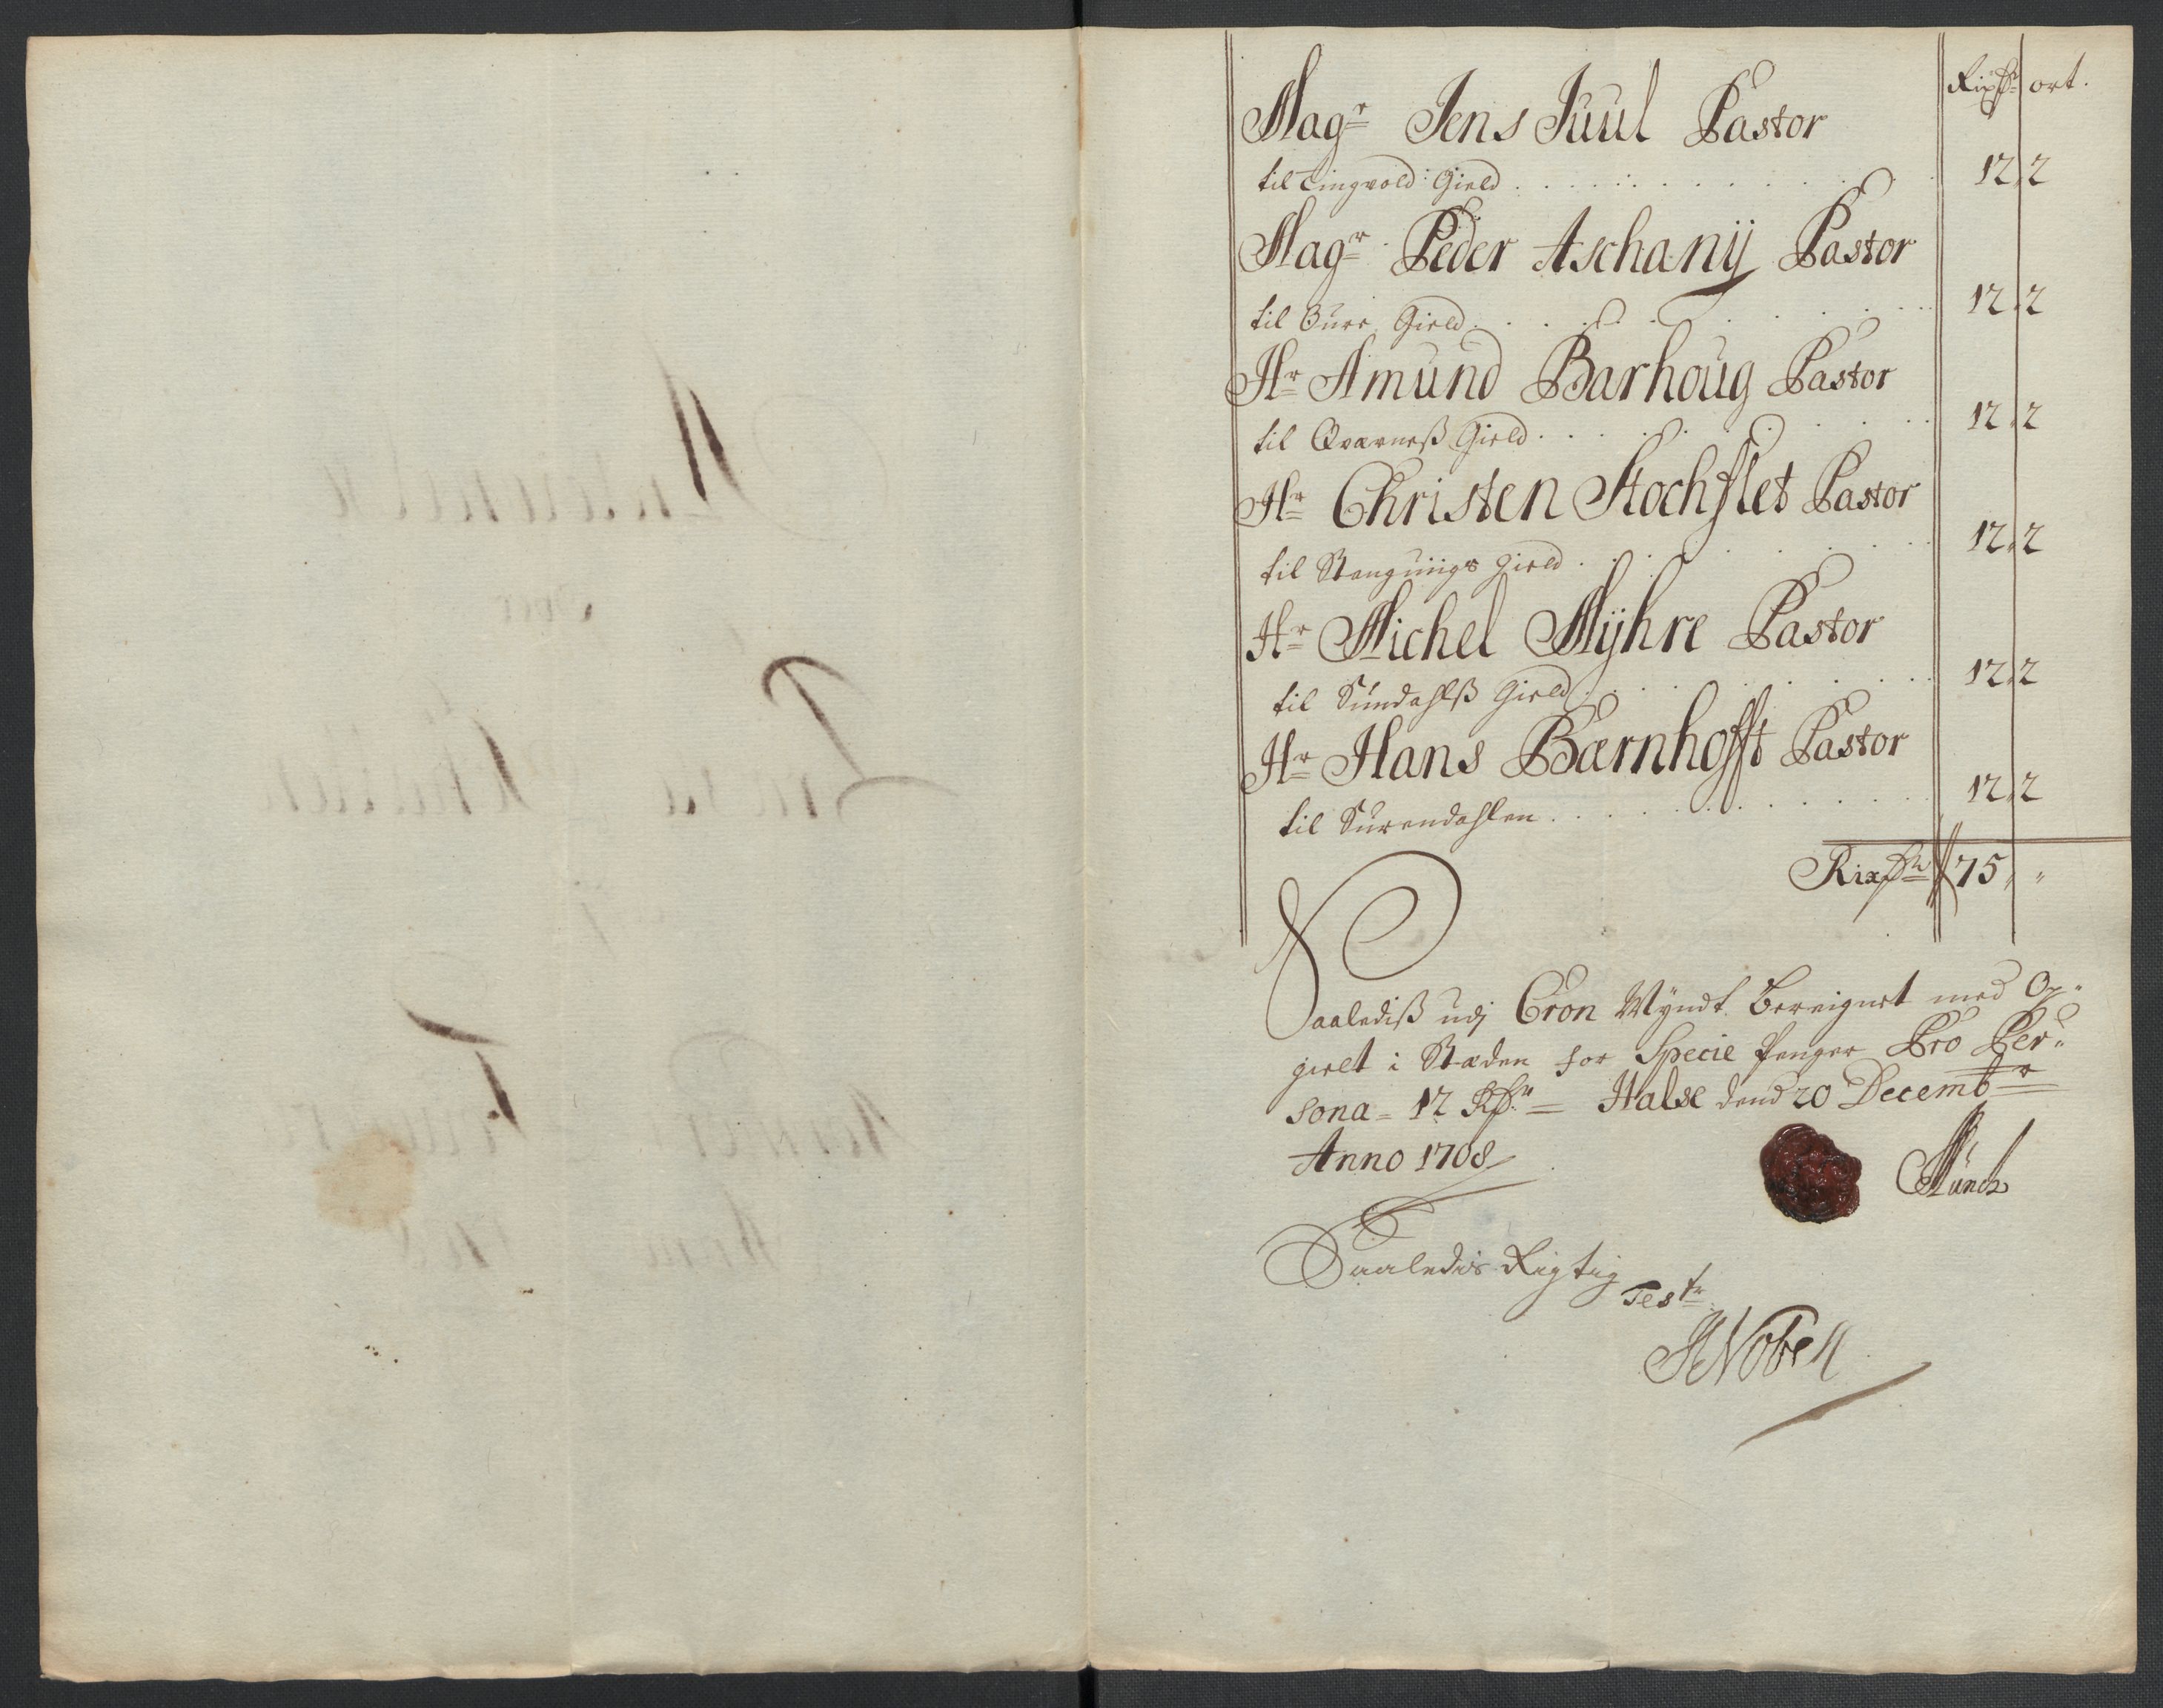 Rixdr ort.
Magr Jens Juul Pastor
til Tingvold Gield . . . . . . . . . . 12 2
Magr Peder Aschanij Pastor
til Øure Gield . . . . . . . . . . 12 2
Hr Amund Barhoug Pastor
til Qværneß Gield . . . . . . . . . . 12 2
Hr Christen Stochflet Pastor
til Stangviigs Gield . . . . . . . . . . 12 2
Hr Michel Mÿhre Pastor
til Sundahlß Gield . . . . . . . . . . 12 2
Hr Hans Bærnhofft Pastor
til Surendahlen . . . . . . . . . . 12 2
Rixdr 75 " "
Saalediß udj Cron Myndt bereignet med Op=
gielt i Stæden for Specie Penger Pro Per=
sona = 12 Rdr = Halse dend 20 Decembr
Anno 1708
Münch
Saaledis Rigtig
Testr